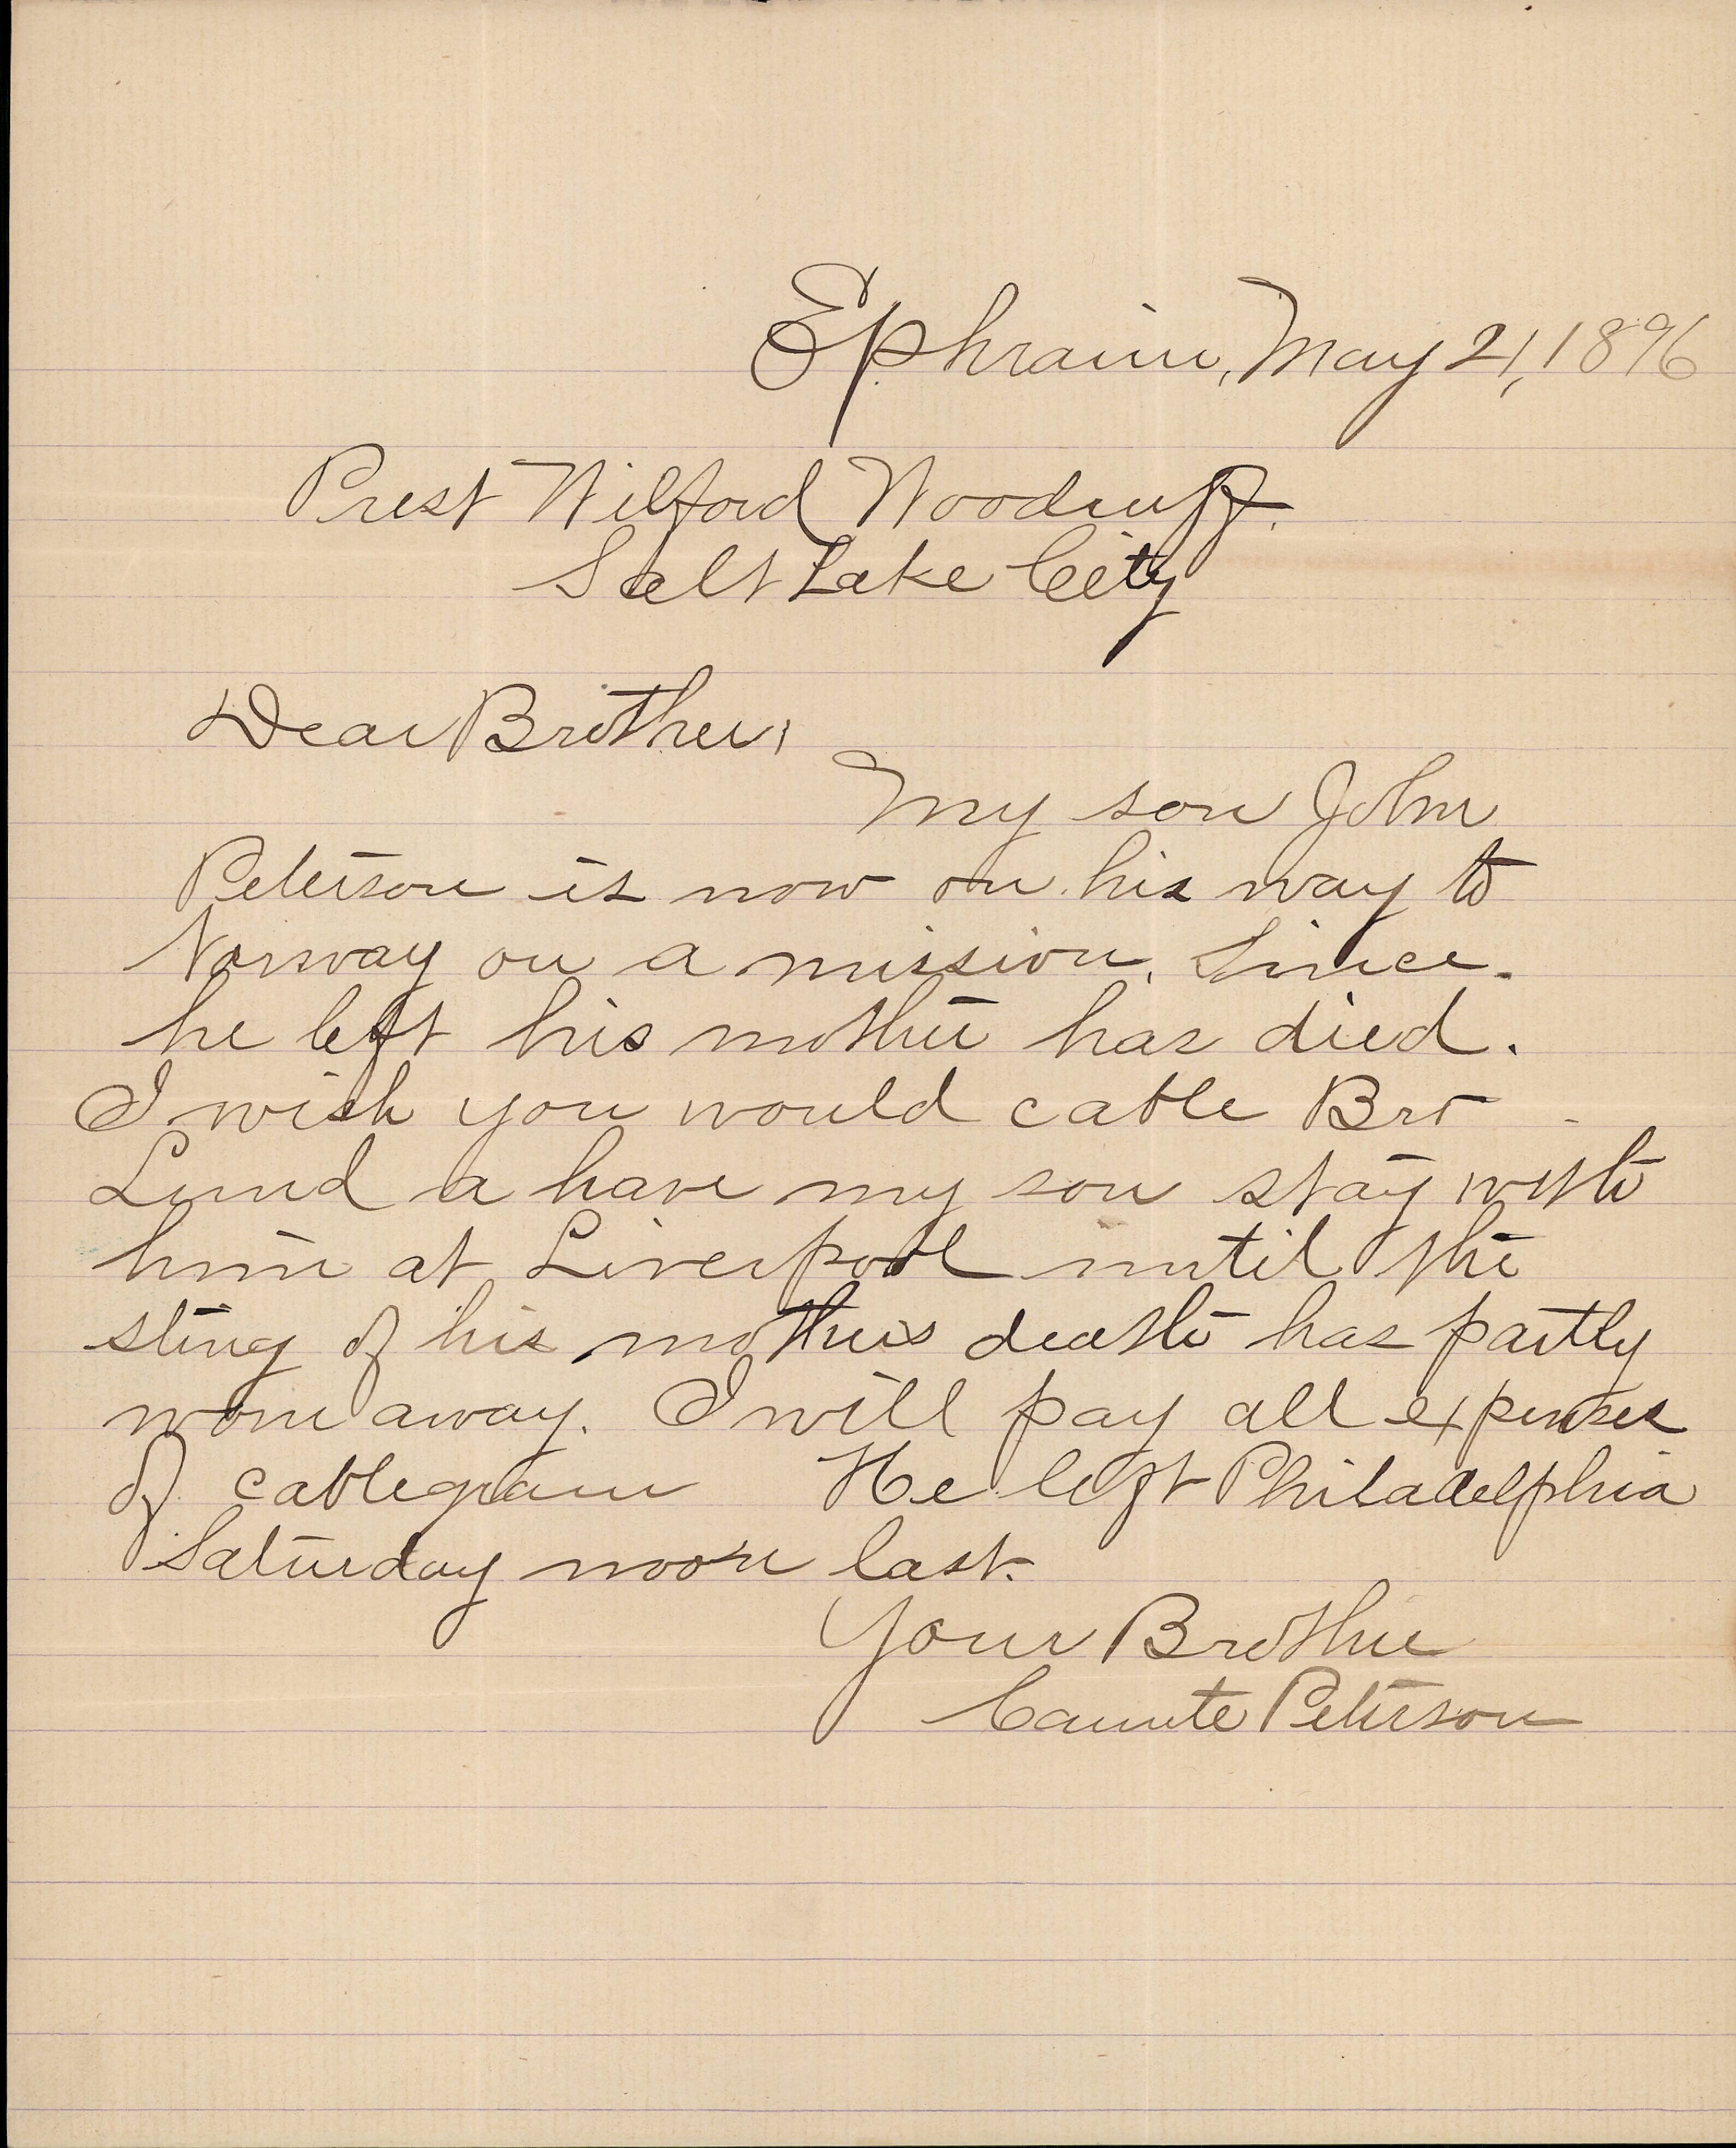 Ephraim, May 21, 1896
Prest Wilford Woodruff.
Salt Lake City
Dear Brother,
My son John
Peterson is now on his way to
Norway on a mission. Since
he left his mother has died.
I wish you would cable Bro
Lund a have my son stay with
him at Liverpool until the
sting of his mothers death has partly
worn away. I will pay all expenses
of cablegram He left Philadelphia
Saturday noon last.
Your Brother
Canute Peterson